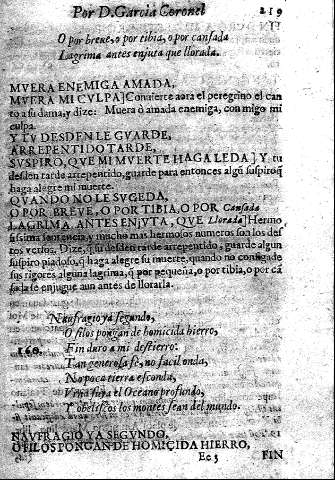 Por D. Garcia Coronel 219
O por breve, o por tibia, o por cansada
Lagrima antes enjuta que llorada.
MVERA ENEMIGA AMADA,
MVERA MI CVLPA] Convierte aora el peregrino el can
to a su dama, y dize: Muera ò amada enemiga, con migo mi
culpa.
Y TV DESDEN LE GVARDE,
ARREPENTIDO TARDE,
SVSPIRO, QVE MI MVERTE HAGA LEDA] Y tu
desden tarde arrepentido, guarde para entonces algũ suspiro q̃
haga alegre mi muerte.
QVANDO NO LE SVCEDA,
O POR BREVE, O POR TIBIA, O POR Cansada
LAGRIMA ANTES ENJVTA, QVE Llorada] Hermo
sissima sentencia, y mucho mas hermosos numeros son los des
tos versos. Dize, q̃ su desden tarde arrepentido, guarde algun
suspiro piadoso, q̃ haga alegre su muerte, quando no consiga de
sus rigores alguna lagrima, q̃ por pequeña, o por tibia, o por cã
sada se enjugue aun antes de llorarla.
Naufragio ya segundo,
O filos pongan de homicida hierro,
160. Fin duro a mi destierro:
Tan generosa fè, no facil onda,
No poca tierra esconda,
Vrna sera el Oceano profundo,
Y obeliscos los montes sean del mundo.
NAVFRAGIO YA SEGVNDO,
O FILOS PONGAN DE HOMICIDA HIERRO,
Ee 3 FIN